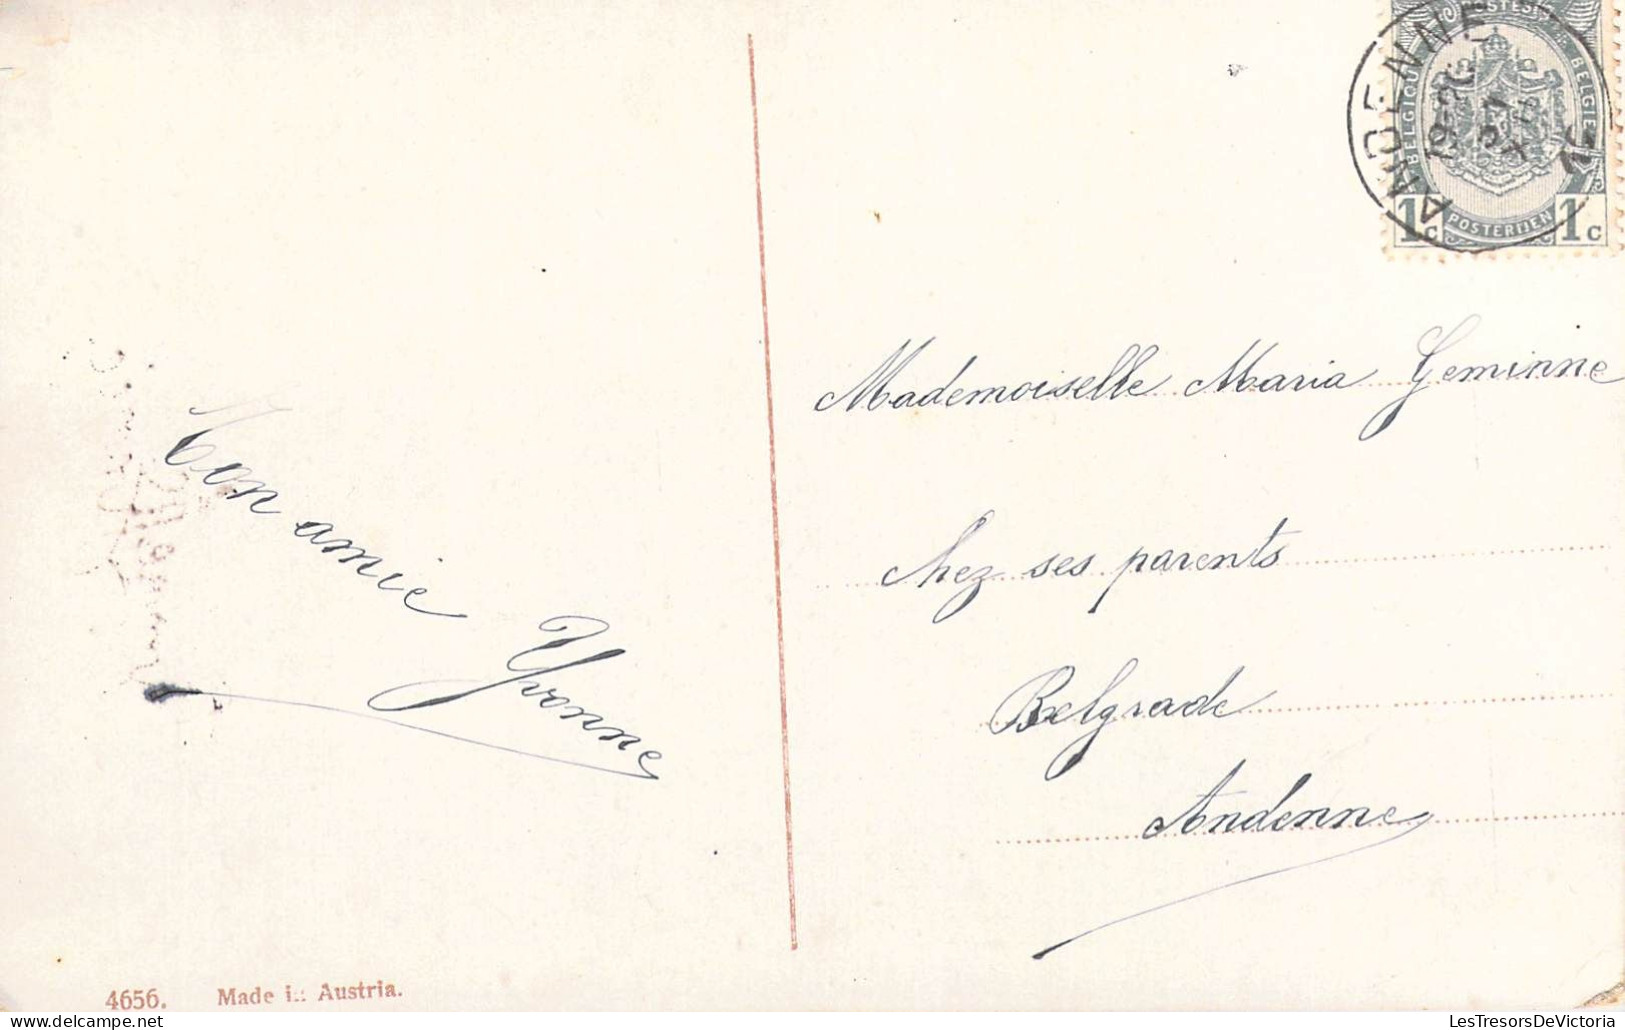 ANDENNE
POSTES
BELGIQUE
BELGIE
POSTERIJEN
1c 1c
Mademoiselle Maria Geminne
Chez ses parents
Belgrade
Andenne
Ton amie
Yvonne
4656. Made in Austria.
LesTresorsDeVictoria